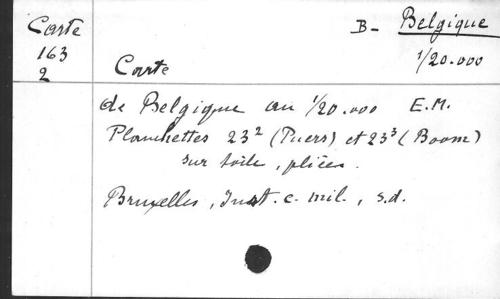 Carte
163
2
B- Belgique
1/20.000
Carte
de Belgique au 1/20.000 E.M.
Planchettes 23² (Puers) et 23³ (Boom)
sur toile, pliées.
Bruxelles, Inst. c. mil., s.d.